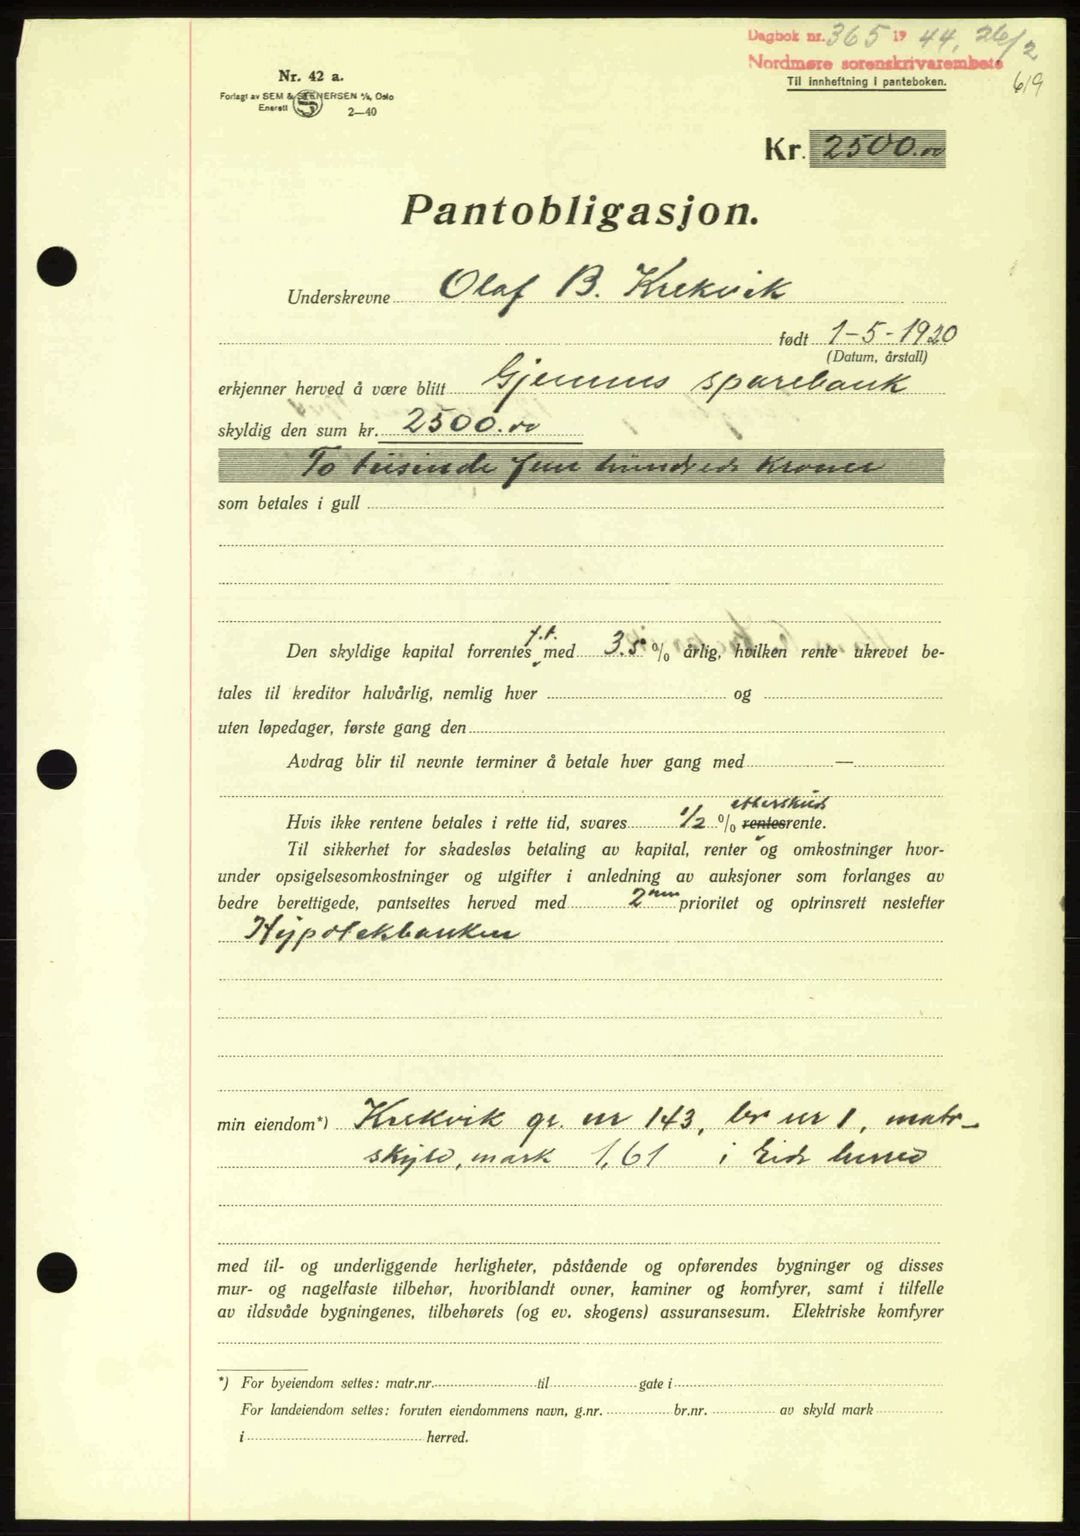 Dagbok nr. 365 19 44, 26/2
Nordmøre sorenskrivarembete
Til innheftning i panteboken.
619
Nr. 42 a.
Forlagt av SEM & STENERSEN A/S, Oslo
Enerett
2—40
Kr. 2500.00
Pantobligasjon.
Underskrevne Olaf B. Krekvik
født 1-5-1920
(Datum, årstall)
erkjenner herved å være blitt Gjemnes sparebank
skyldig den sum kr. 2500.00
To tusinde fem hundrede kroner
som betales i gull
f.t.
Den skyldige kapital forrentes med 3.5 % årlig, hvilken rente ukrevet be-
tales til kreditor halvårlig, nemlig hver og
uten løpedager, første gang den
Avdrag blir til nevnte terminer å betale hver gang med —
etterskuds
Hvis ikke rentene betales i rette tid, svares 1/2 % rentesrente.
Til sikkerhet for skadesløs betaling av kapital, renter og omkostninger hvor-
under opsigelsesomkostninger og utgifter i anledning av auksjoner som forlanges av
bedre berettigede, pantsettes herved med 2nen prioritet og optrinsrett nestefter
Hypotekbanken
min eiendom*) Krekvik gr. nr 143, br nr 1, matr-
skyld, mark 1,61 i Eids herred
med til- og underliggende herligheter, påstående og opførendes bygninger og disses
mur- og nagelfaste tilbehør, hvoriblandt ovner, kaminer og komfyrer, samt i tilfelle
av ildsvåde bygningenes, tilbehørets (og ev. skogens) assuransesum. Elektriske komfyrer
*) For byeiendom settes: matr.nr. til gate i
For landeiendom settes: foruten eiendommens navn, g.nr. br.nr. av skyld mark
i herred.